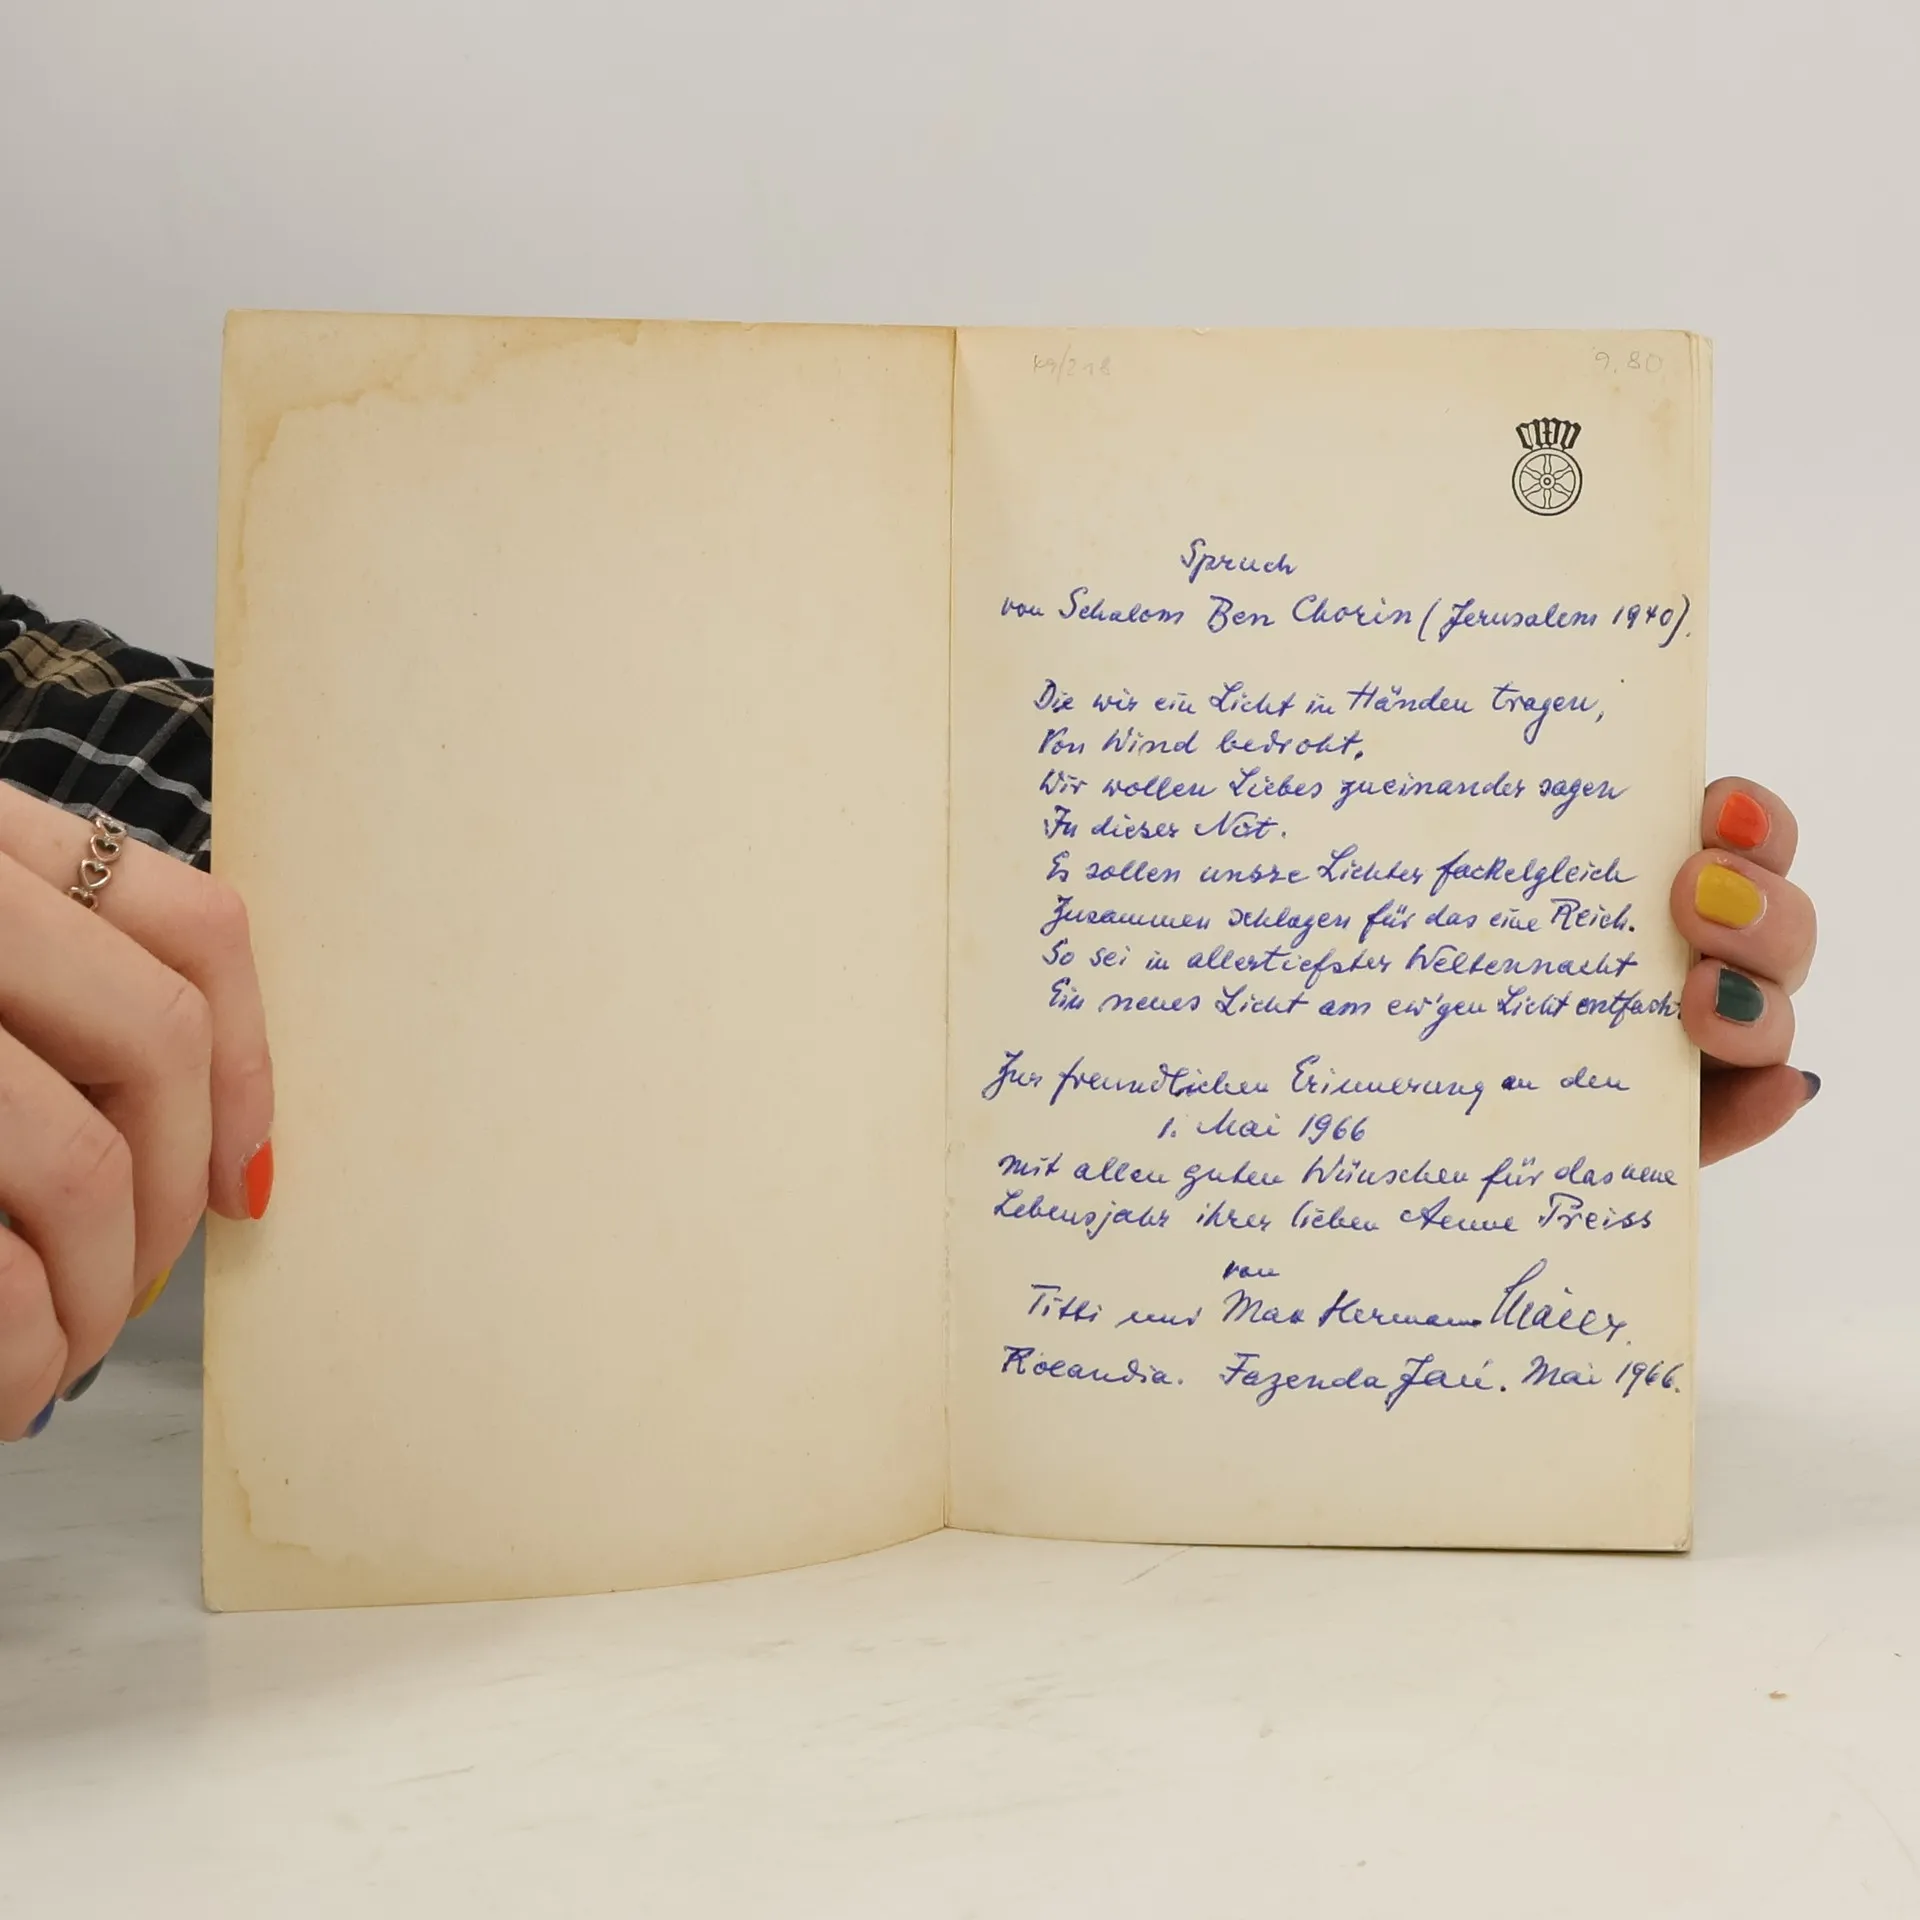 9.80
Spruch
von Schalom Ben Chorin (Jerusalem 1940).
Die wir ein Licht in Händen tragen,
Von Wind bedroht,
Wir wollen Liebes zueinander sagen
In dieser Not.
Es sollen unsre Lichter fackelgleich
Zusammen schlagen für das eine Reich.
So sei in allertiefster Weltennacht
Ein neues Licht am ew'gen Licht entfacht.
Zur freundlichen Erinnerung an den
1. Mai 1966
mit allen guten Wünschen für das neue
Lebensjahr ihrer lieben Aenne Preiss
von
Titti und Max Hermann Maier.
Rolandia. Fazenda Jaú. Mai 1966.